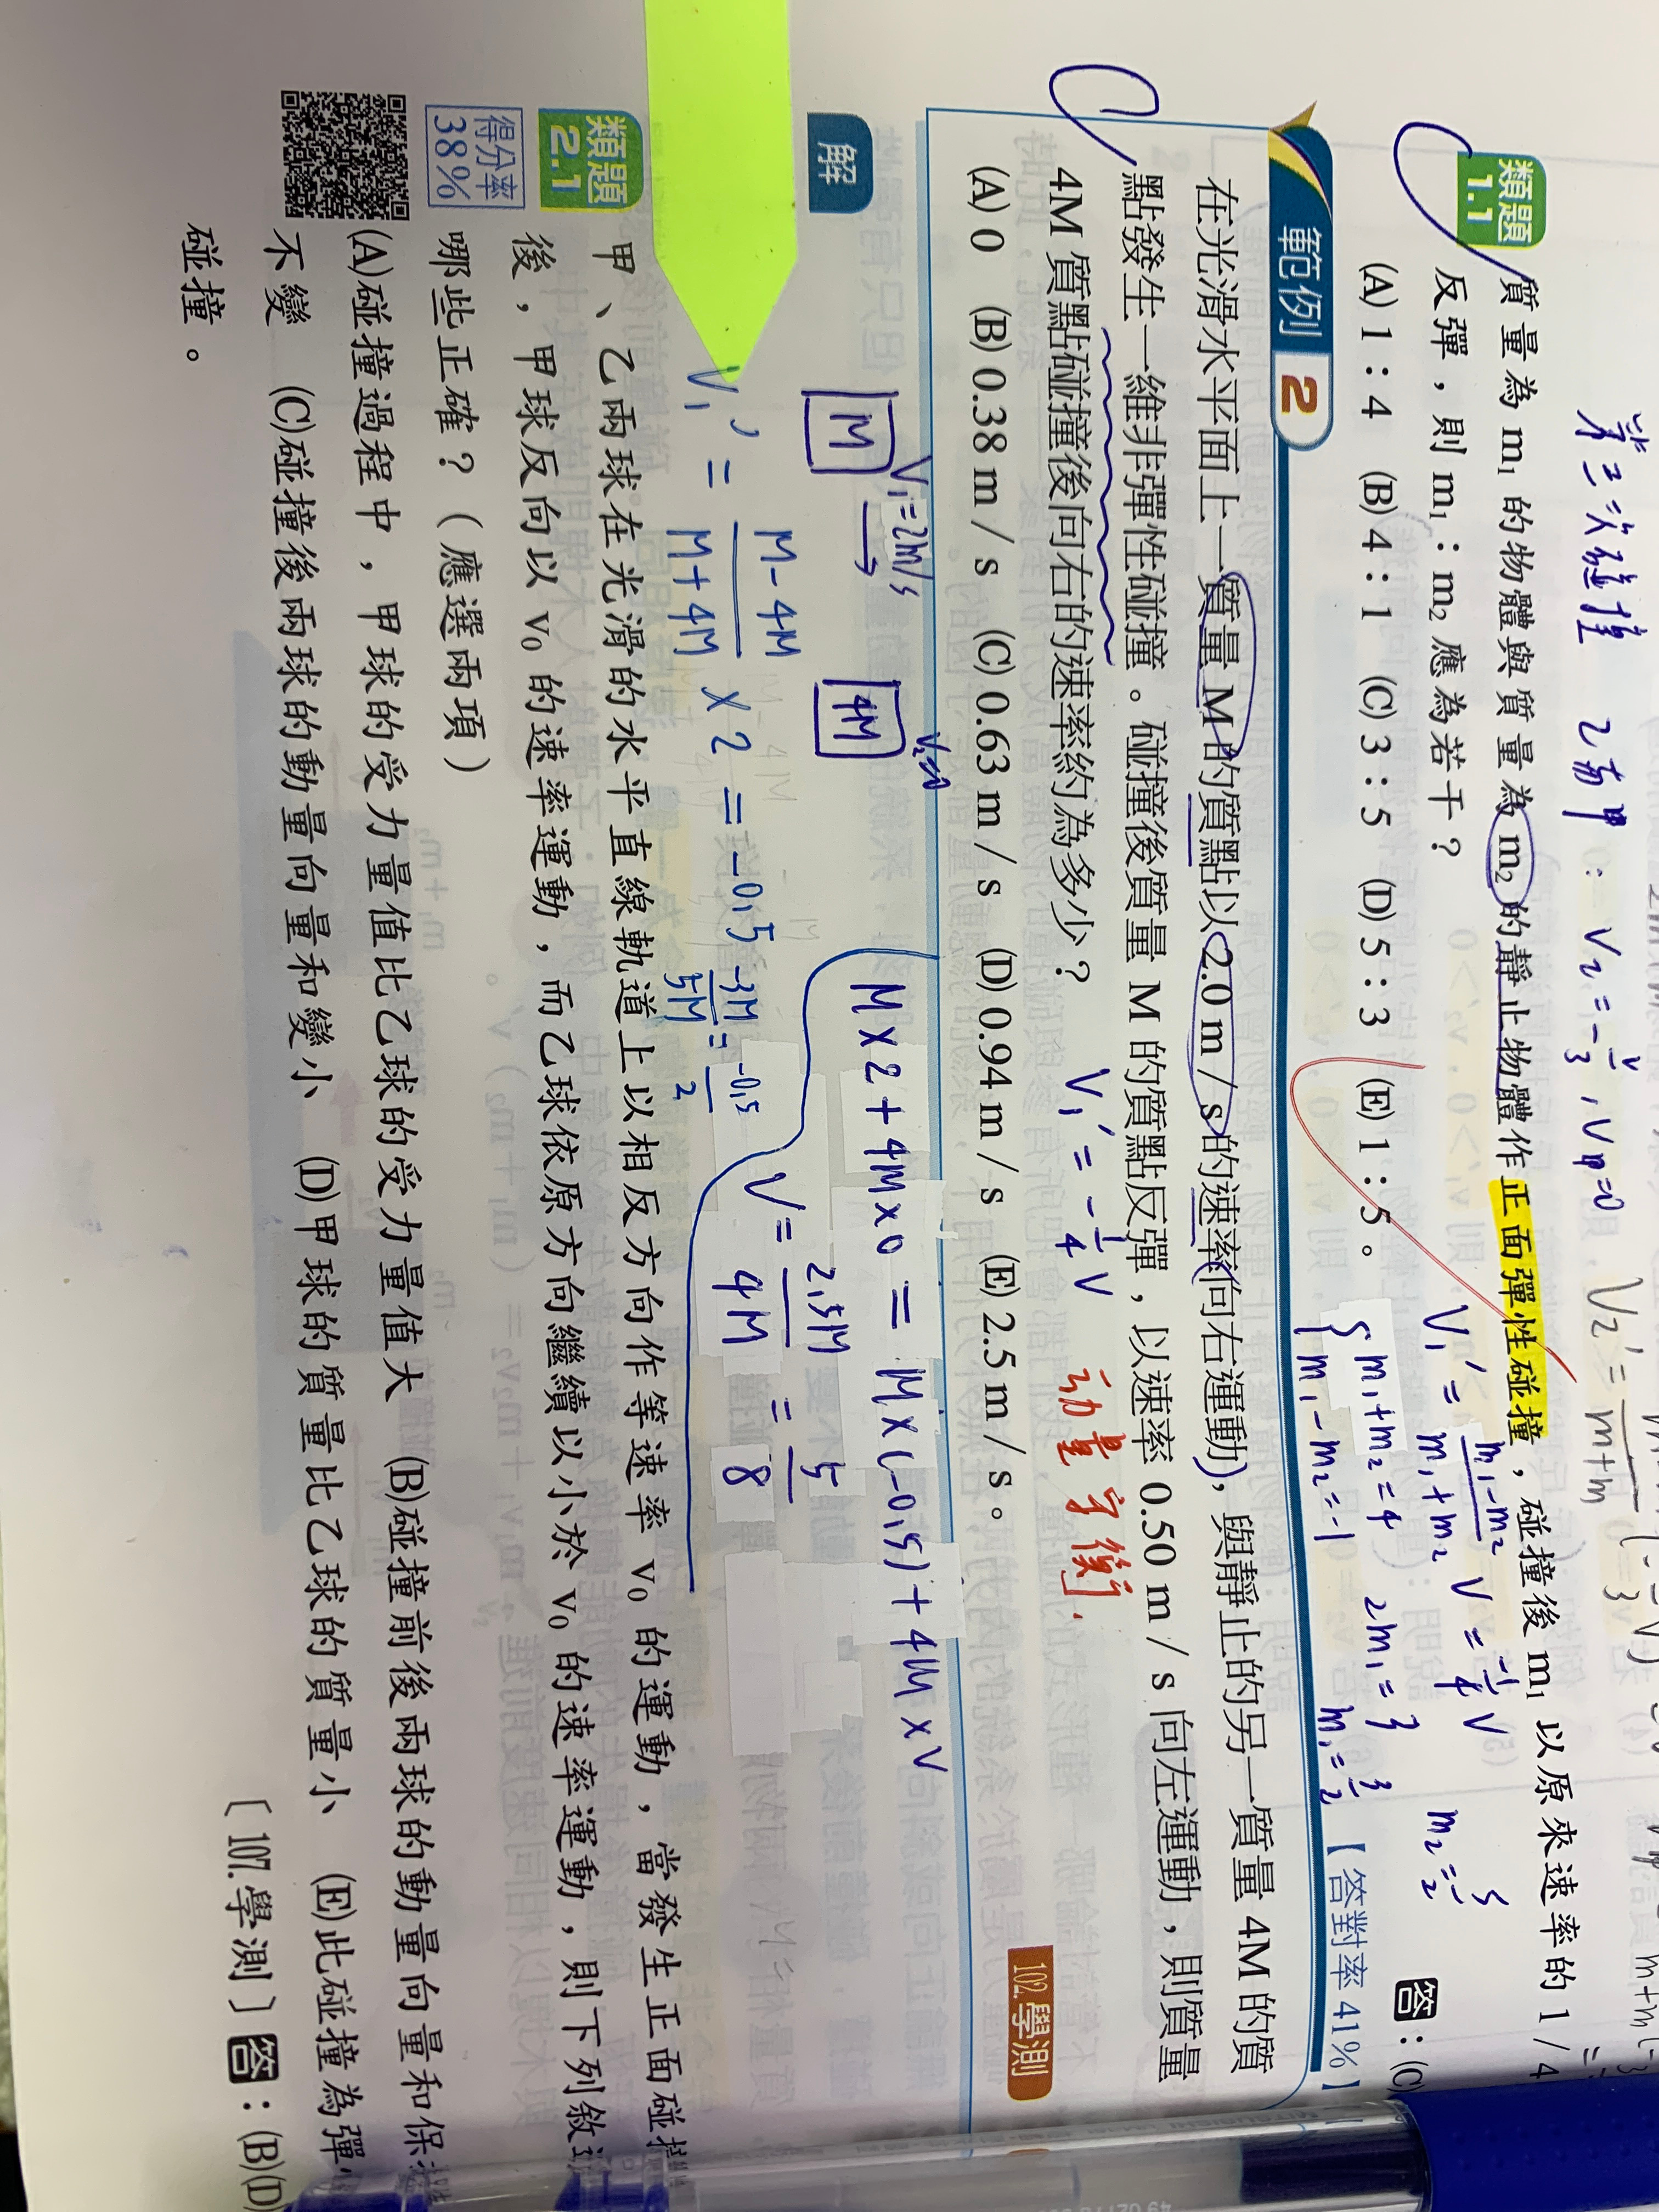 第二次碰撞 2劃甲: V₂ = -v/3, V甲=0
類題
1.1
質量為 m₁ 的物體與質量為 m₂ 的靜止物體作正面彈性碰撞,碰撞後 m₁ 以原來速率的 1/4
反彈,則 m₁:m₂ 應為若干?
V₁' = (m₁-m₂)/(m₁+m₂) V = -1/4 V
(A) 1:4 (B) 4:1 (C) 3:5 (D) 5:3 (E) 1:5。
答:(C)
m₁+m₂=4
m₁-m₂=-1
2m₁=3
m₁=3/2
m₂=5/2
範例 2
【答對率 41%】
在光滑水平面上一質量 M 的質點以 2.0 m/s 的速率(向右運動),與靜止的另一質量 4M 的質
點發生一維非彈性碰撞。碰撞後質量 M 的質點反彈,以速率 0.50 m/s 向左運動,則質量
4M 質點碰撞後向右的速率約為多少?
V₁' = -1/4 V
动量守衡.
(A) 0 (B) 0.38 m/s (C) 0.63 m/s (D) 0.94 m/s (E) 2.5 m/s。
102.學測
解
V₁=2m/s
V₂=0
M
4M
M×2+4M×0 = M×(-0.5)+4M×V
V = 2.5M/4M = 5/8
V₁' = (M-4M)/(M+4M) × 2 = -0.5
-3M/5M = -0.5/2
類題
2.1
得分率
38%
甲、乙兩球在光滑的水平直線軌道上以相反方向作等速率 v₀ 的運動,當發生正面碰撞
後,甲球反向以 v₀ 的速率運動,而乙球依原方向繼續以小於 v₀ 的速率運動,則下列敘述
哪些正確?(應選兩項)
(A)碰撞過程中,甲球的受力量值比乙球的受力量值大 (B)碰撞前後兩球的動量向量和保持
不變 (C)碰撞後兩球的動量向量和變小 (D)甲球的質量比乙球的質量小 (E)此碰撞為彈性
碰撞。
〔107.學測〕答:(B)(D)